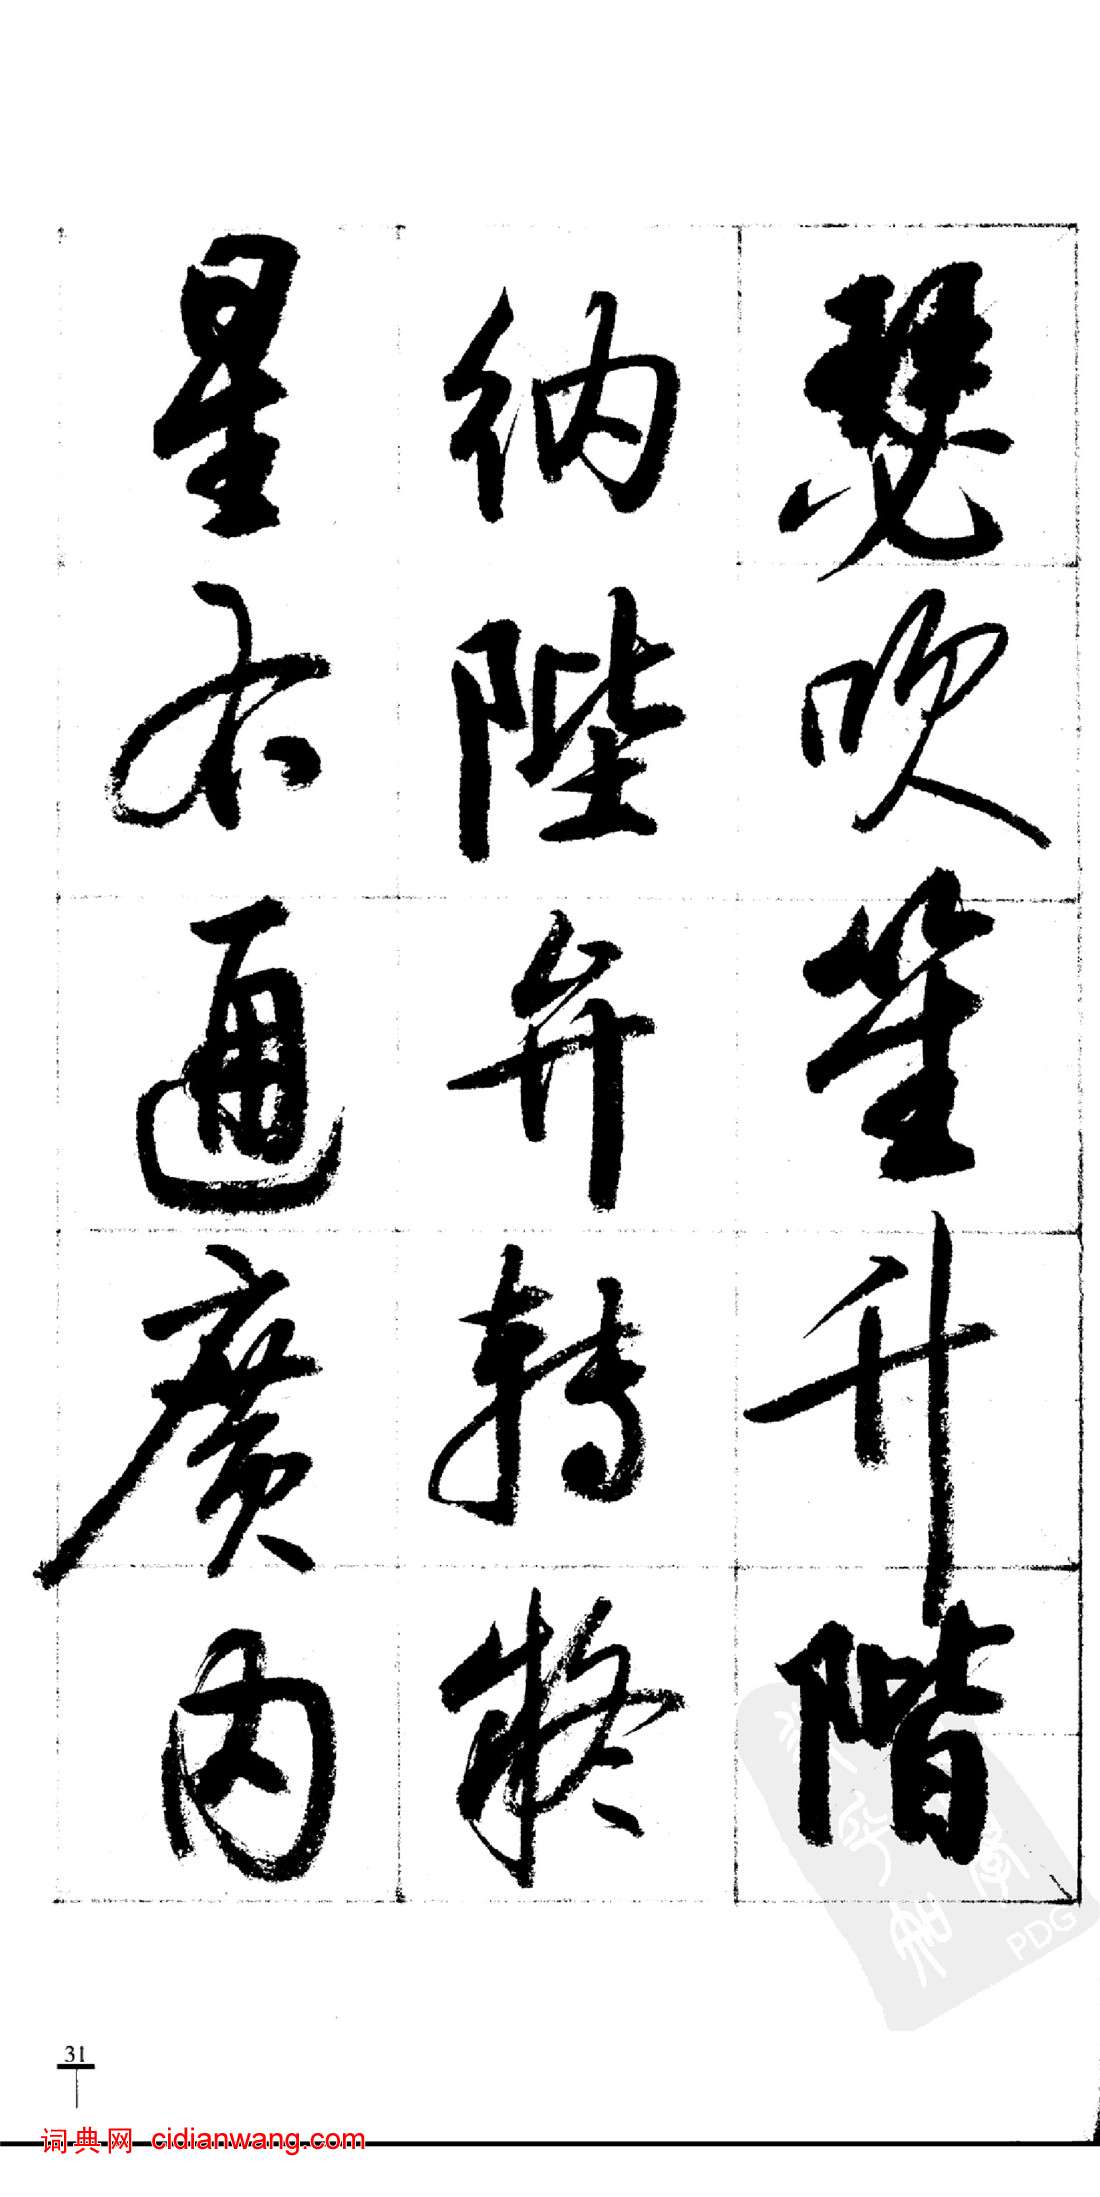 瑟吹笙升階
納陛弁轉疑
星右通廣內
31
PDG
词典网 cidianwang.com